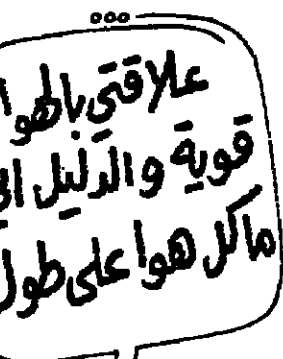 علاقتي بالهوا
قوية والدليل اني
ماكل هوا على طول